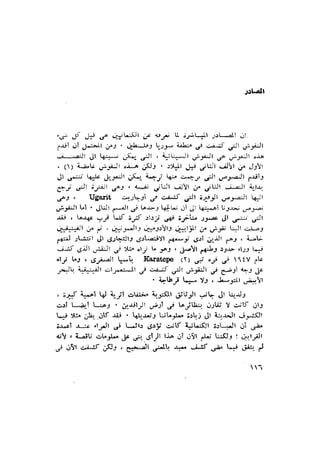 المصادر
ان المصادر المباشرة لما نعرفه عن الكنعانيين هى قبل كل شىء
النقوش التى كشفت فى منطقة سوريا وفلسطين ٠ ومن المحتمل أن أقدم
هذه النقوش هى النقوش السينائية ، التى يمكن نسبتها الى النصف
الأول من الألف الثانى قبل الميلاد ٠ ولكن هذه النقوش غامضة (١) ٠
وأقدم النصوص التى ترجمت منها ترجمة يمكن التعويل عليها تنتمى الى
بداية النصف الثانى من الألف الثانى نفسه ، وهى الفترة التى ترجع
اليها النصوص الوفيرة التى كشفت فى أوجاريت Ugarit ، وهى
نصوص تحدونا أهميتها الى أن نعالجها وحدها فى القسم التالى ٠ أما النقوش
التى تنتمى الى عصور متأخرة فهى تزداد كثرة كلما قرب عهدها ، فقد
وصلت الينا نقوش من المؤابيين والأدوميين والعمونيين ، ثم من الفينيقيين
خاصة ، وهم الذين أدى توسعهم الاقتصادى والتجارى الى انتشار لغتهم
فيما وراء حدود وطنهم الأصلى ٠ وهو ما نراه مثلا فى النقش الذى كشف
عام ١٩٤٧ فى قره تبى (٢) Karatepe بآسيا الصغرى ، وما نراه
على وجه أوضح فى النقوش التى كشفت فى المستعمرات الفينيقية بالبحر
الأبيض المتوسط ، ولا سيما قرطاجة ٠
ولدينا الى جانب الوثائق المكتوبة مخلفات أثرية لها أهمية كبيرة ،
وان كانت لا تقارن بنظائرها فى أرض الرافدين ٠ وهنا أيضا أدت
الكشوف الحديثة الى زيادة معلوماتنا وتعديلها ٠ فقد كان يظن مثلا فيما
مضى أن العبادة الكنعانية كانت تؤدى دائما فى العراء عند أعمدة
القرابين ؛ ولكننا نعلم الآن أن هذا الرأى بنى على معلومات ناقصة ٠ لأنه
لم يتفق فيما مضى كشف معبد بالمعنى الصحيح ، ولكن كشفت فى الآن
١١٦